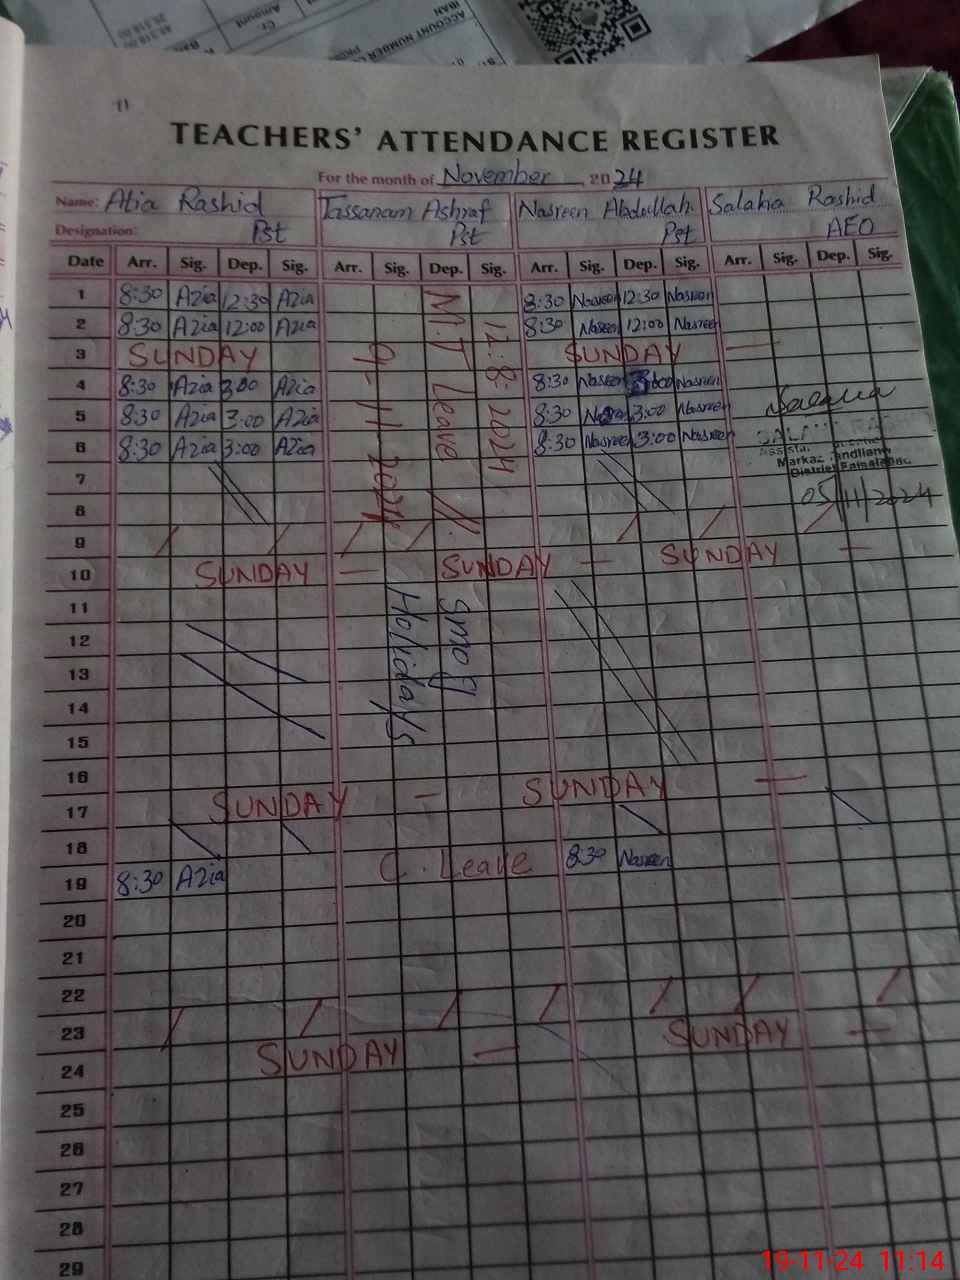 11
TEACHERS' ATTENDANCE REGISTER
For the month of November 2024
Name: Atia Rashid Tassanam Ashraf Nasreen Abdullah Salaha Rashid
Designation: Pst Pst Pst AEO
Date Arr. Sig. Dep. Sig. Arr. Sig. Dep. Sig. Arr. Sig. Dep. Sig. Arr. Sig. Dep. Sig.
1 8:30 Azia 12:30 Azia 8:30 Nasreen 12:30 Nasreen
2 8:30 Azia 12:00 Azia 8:30 Nasreen 12:00 Nasreen
3 SUNDAY SUNDAY —
4 8:30 Azia 3:00 Azia 8:30 Nasreen 3:00 Nasreen
5 8:30 Azia 3:00 Azia 8:30 Nasreen 3:00 Nasreen
6 8:30 Azia 3:00 Azia 8:30 Nasreen 3:00 Nasreen
M.T Leave
12.8.2024
9-11-2024
Salaha
Markaz
District Faisalabad
05/11/2024
7
8
9
10 SUNDAY — SUNDAY — SUNDAY —
11
12
13
14
15
Smog
Holidays
16
17 SUNDAY — SUNDAY —
18
19 8:30 Azia C. Leave 8:30 Nasreen
20
21
22
23
24 SUNDAY — SUNDAY —
25
26
27
28
29
ACCOUNT NUMBER
IBAN
Cr.
Amount
19-11-24 11:14